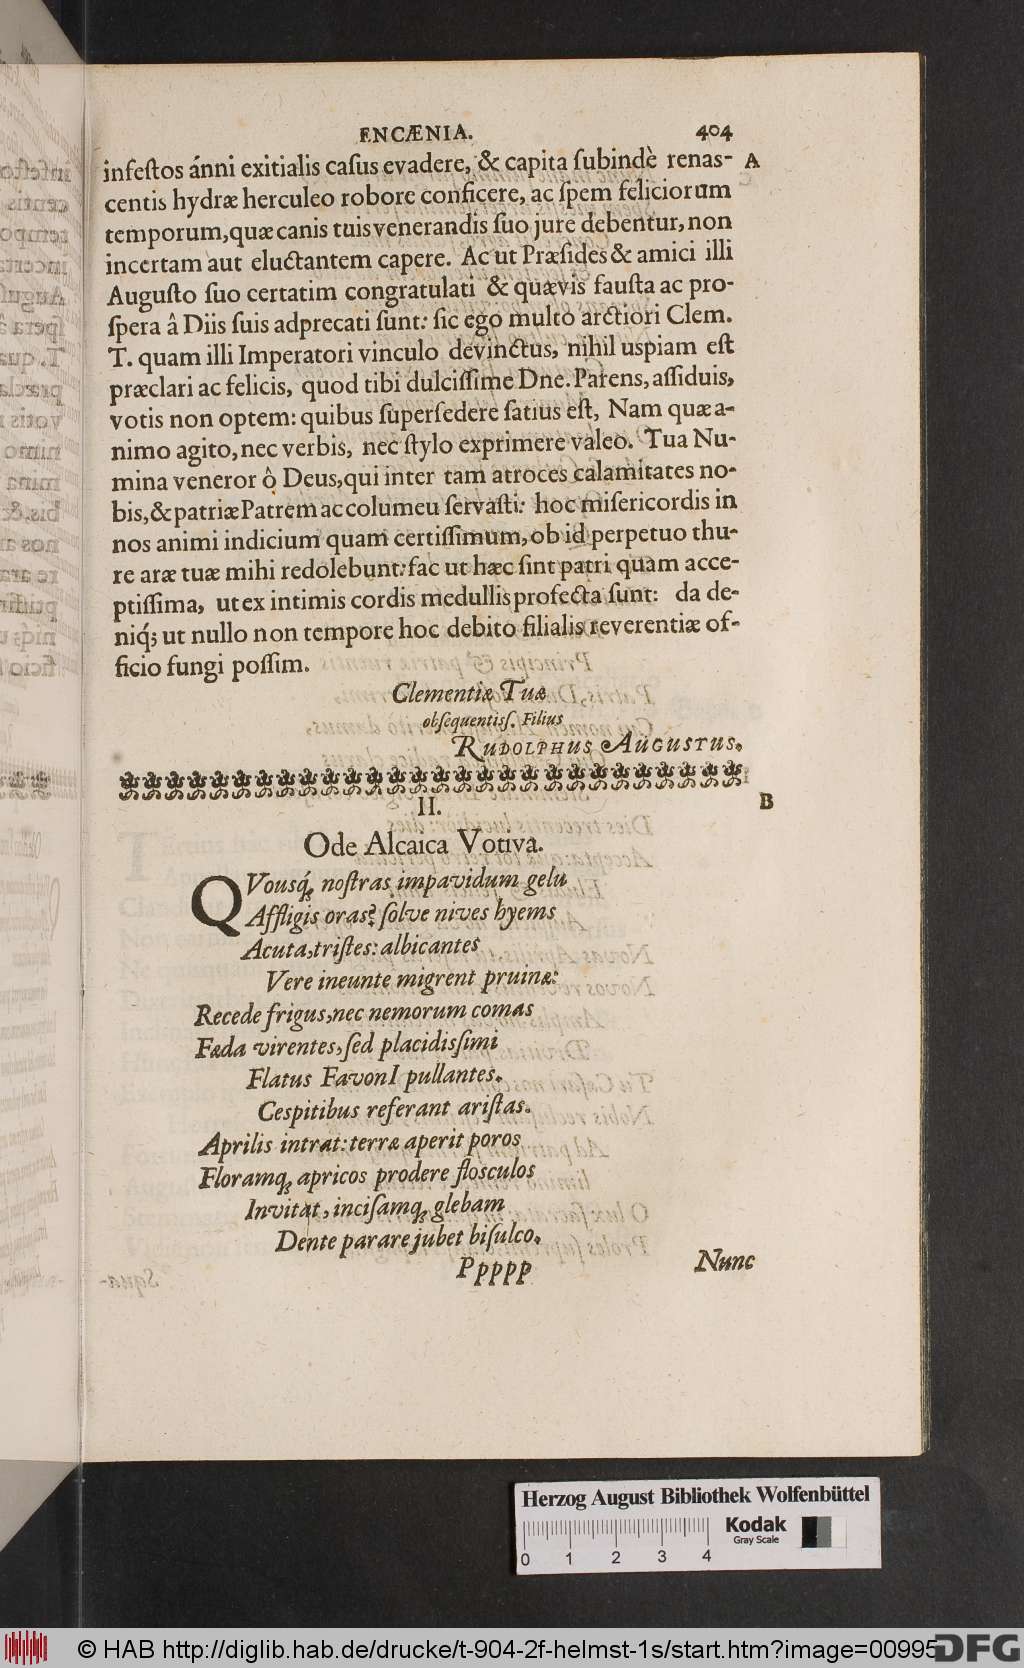 ENCÆNIA. 404
infeſtos ánni exitialis caſus evadere, & capita ſubindè renas- A
centis hydræ herculeo robore conficere, ac ſpem feliciorum
temporum, quæ canis tuis venerandis ſuo jure debentur, non
incertam aut eluctantem capere. Ac ut Præſides & amici illi
Auguſto ſuo certatim congratulati & quævis fauſta ac pro-
ſpera â Diis ſuis adprecati ſunt: ſic ego multo arctiori Clem.
T. quam illi Imperatori vinculo devinctus, nihil uspiam eſt
præclari ac felicis, quod tibi dulciſſime Dne. Parens, aſſiduis,
votis non optem: quibus ſuperſedere ſatius eſt, Nam quæ a-
nimo agito, nec verbis, nec ſtylo exprimere valeo. Tua Nu-
mina veneror ô Deus, qui inter tam atroces calamitates no-
bis, & patriæ Patrem ac columeu ſervaſti: hoc miſericordis in
nos animi indicium quam certiſſimum, ob id perpetuo thu-
re aræ tuæ mihi redolebunt: fac ut hæc ſint patri quam acce-
ptiſſima, ut ex intimis cordis medullis profecta ſunt: da de-
niq́; ut nullo non tempore hoc debito filialis reverentiæ of-
ficio fungi poſſim.
Clementiæ Tuæ
obſequentiſſ. Filius
RUDOLPHUS AUGUSTUS.
II. B
Ode Alcaica Votiva.
QVousq́; noſtras impavidum gelu
Affligis oras? ſolve nives hyems
Acuta, triſtes: albicantes
Vere ineunte migrent pruinæ:
Recede frigus, nec nemorum comas
Fæda virentes, ſed placidiſſimi
Flatus FavonI pullantes.
Cespitibus referant ariſtas.
Aprilis intrat: terræ aperit poros
Floramq; apricos prodere floſculos
Invitat, inciſamq; glebam
Dente parare jubet biſulco.
Ppppp Nunc
Herzog August Bibliothek Wolfenbüttel
Kodak
Gray Scale
0 1 2 3 4
© HAB http://diglib.hab.de/drucke/t-904-2f-helmst-1s/start.htm?image=00995
DFG